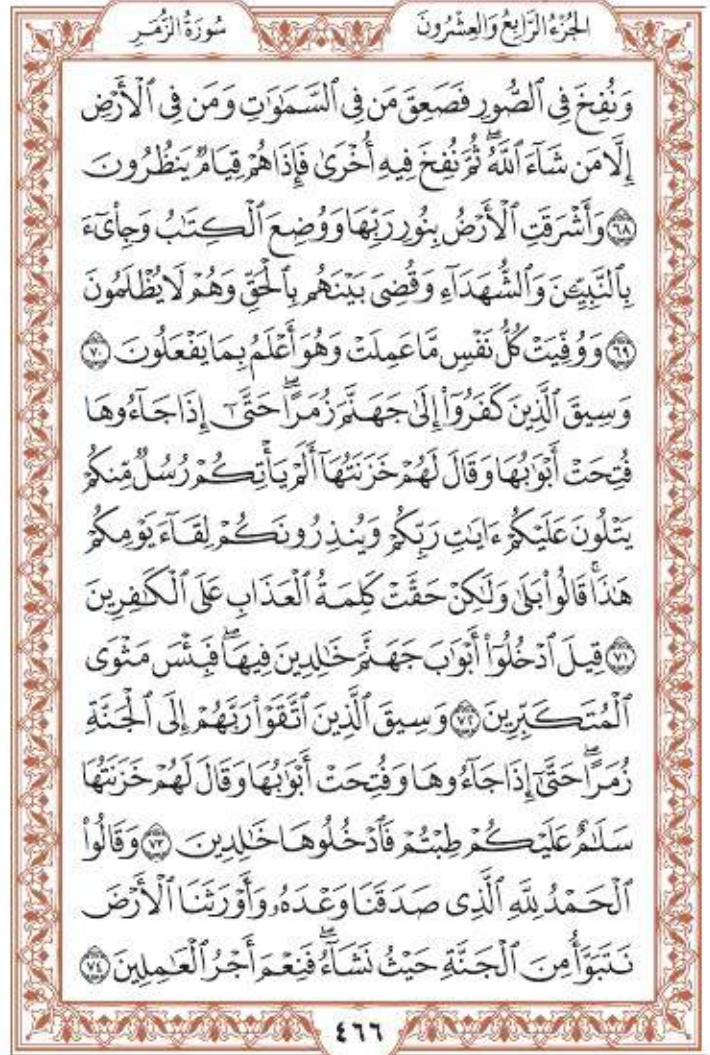 الجُزْءُ الرَّابِعُ وَالعِشْرُونَ
سُورَةُ الزُّمَرِ
وَنُفِخَ فِي ٱلصُّورِ فَصَعِقَ مَن فِي ٱلسَّمَٰوَٰتِ وَمَن فِي ٱلْأَرْضِ
إِلَّا مَن شَآءَ ٱللَّهُۖ ثُمَّ نُفِخَ فِيهِ أُخْرَىٰ فَإِذَا هُمْ قِيَامٌ يَنظُرُونَ
٦٨ وَأَشْرَقَتِ ٱلْأَرْضُ بِنُورِ رَبِّهَا وَوُضِعَ ٱلْكِتَٰبُ وَجِا۟ىٓءَ
بِٱلنَّبِيِّۦنَ وَٱلشُّهَدَآءِ وَقُضِىَ بَيْنَهُم بِٱلْحَقِّ وَهُمْ لَا يُظْلَمُونَ
٦٩ وَوُفِّيَتْ كُلُّ نَفْسٍ مَّا عَمِلَتْ وَهُوَ أَعْلَمُ بِمَا يَفْعَلُونَ ٧٠
وَسِيقَ ٱلَّذِينَ كَفَرُوٓا۟ إِلَىٰ جَهَنَّمَ زُمَرًاۖ حَتَّىٰٓ إِذَا جَآءُوهَا
فُتِحَتْ أَبْوَٰبُهَا وَقَالَ لَهُمْ خَزَنَتُهَآ أَلَمْ يَأْتِكُمْ رُسُلٌ مِّنكُمْ
يَتْلُونَ عَلَيْكُمْ ءَايَٰتِ رَبِّكُمْ وَيُنذِرُونَكُمْ لِقَآءَ يَوْمِكُمْ
هَٰذَاۚ قَالُوا۟ بَلَىٰ وَلَٰكِنْ حَقَّتْ كَلِمَةُ ٱلْعَذَابِ عَلَى ٱلْكَٰفِرِينَ
٧١ قِيلَ ٱدْخُلُوٓا۟ أَبْوَٰبَ جَهَنَّمَ خَٰلِدِينَ فِيهَاۖ فَبِئْسَ مَثْوَى
ٱلْمُتَكَبِّرِينَ ٧٢ وَسِيقَ ٱلَّذِينَ ٱتَّقَوْا۟ رَبَّهُمْ إِلَى ٱلْجَنَّةِ
زُمَرًاۖ حَتَّىٰٓ إِذَا جَآءُوهَا وَفُتِحَتْ أَبْوَٰبُهَا وَقَالَ لَهُمْ خَزَنَتُهَا
سَلَٰمٌ عَلَيْكُمْ طِبْتُمْ فَٱدْخُلُوهَا خَٰلِدِينَ ٧٣ وَقَالُوا۟
ٱلْحَمْدُ لِلَّهِ ٱلَّذِى صَدَقَنَا وَعْدَهُۥ وَأَوْرَثَنَا ٱلْأَرْضَ
نَتَبَوَّأُ مِنَ ٱلْجَنَّةِ حَيْثُ نَشَآءُۖ فَنِعْمَ أَجْرُ ٱلْعَٰمِلِينَ ٧٤
٤٦٦